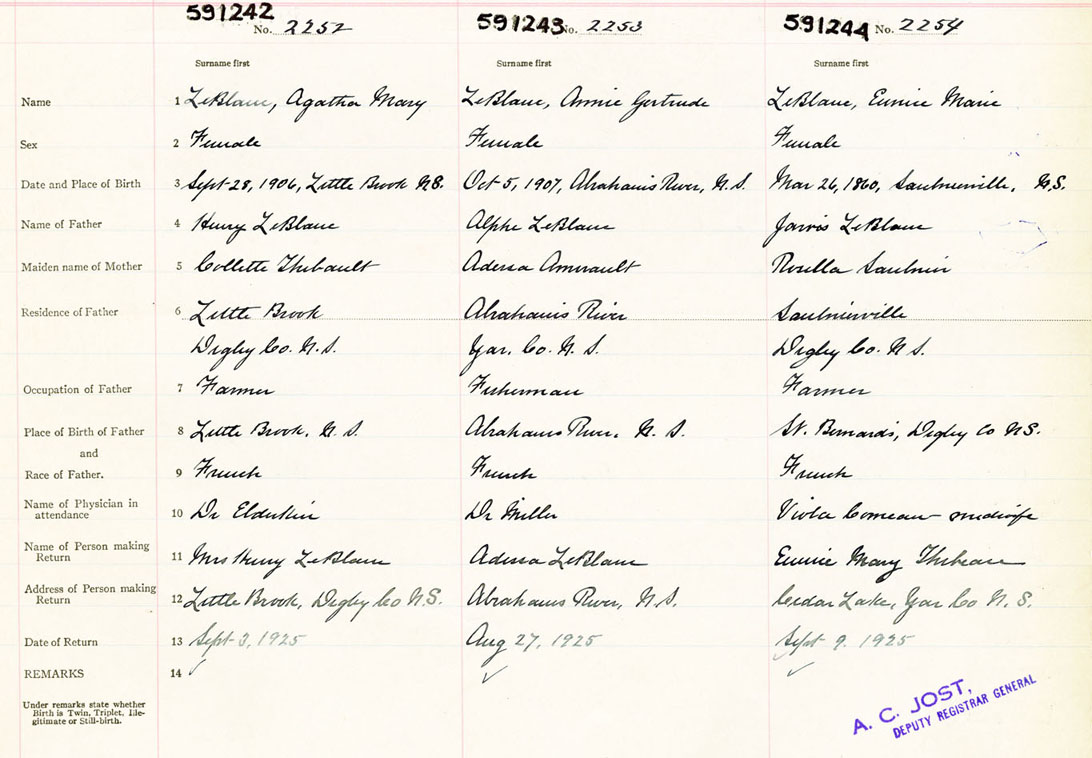 591242 No. 2252 591243 No. 2253 591244 No. 2254
Surname first Surname first Surname first
Name 1 LeBlanc, Agatha Mary LeBlanc, Annie Gertrude LeBlanc, Eunice Marie
Sex 2 Female Female Female
Date and Place of Birth 3 Sept 28, 1906, Little Brook N.S. Oct 5, 1907, Abrahams River, N.S. Mar 26, 1860, Saulnierville, N.S.
Name of Father 4 Henry LeBlanc Alphe LeBlanc Jarvis LeBlanc
Maiden name of Mother 5 Collette Thibault Adessa Amirault Rosella Saulnier
Residence of Father 6 Little Brook Abrahams River Saulnierville
Digby Co. N.S. Yar. Co. N.S. Digby Co. N.S.
Occupation of Father 7 Farmer Fisherman Farmer
Place of Birth of Father 8 Little Brook, N.S. Abrahams River, N.S. St. Bernards, Digby Co N.S.
and
Race of Father. 9 French French French
Name of Physician in
attendance 10 Dr Elderkin Dr Miller Viola Comeau - midwife
Name of Person making
Return 11 Mrs Henry LeBlanc Adessa LeBlanc Eunice Mary Thibeau
Address of Person making
Return 12 Little Brook, Digby Co N.S. Abrahams River, N.S. Cedar Lake, Yar Co N.S.
Date of Return 13 Sept 3, 1925 Aug 27, 1925 Sept 9, 1925
REMARKS 14
Under remarks state whether
Birth is Twin, Triplet, Ille-
gitimate or Still-birth.
A. C. JOST,
DEPUTY REGISTRAR GENERAL